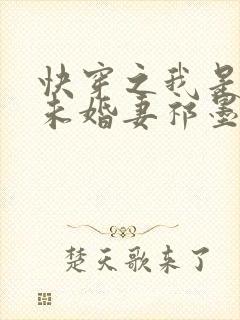 快穿之我是
未婚妻祁墨
楚天歌来了